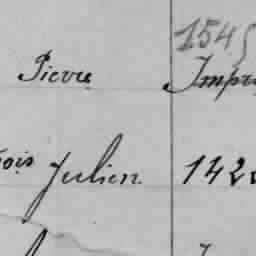 1545
Pierre Impr
ois Julien 142